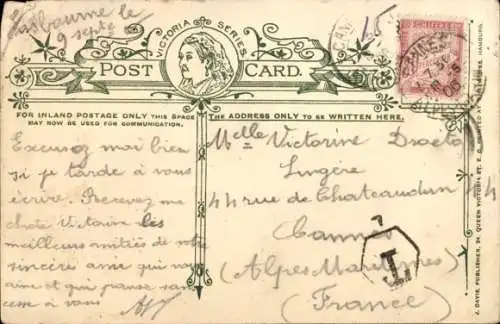 Eastbourne le
9 septe
15
VICTORIA SERIES.
POST CARD.
FOR INLAND POSTAGE ONLY THIS SPACE
MAY NOW BE USED FOR COMMUNICATION.
THE ADDRESS ONLY TO BE WRITTEN HERE.
Excusez moi bien
si je tarde à vous
écrire. Recevez ma
chère Victorine les
meilleurs amitiés de votre
sincère amie qui vous
aime et qui pense sans
cesse à vous
Melle Victorine
Lingère
44 rue de Chateaudun
Cannes
(Alpes Maritimes)
(France)
T
J. DAVIS, PUBLISHER, 24, QUEEN VICTORIA ST. E. C.